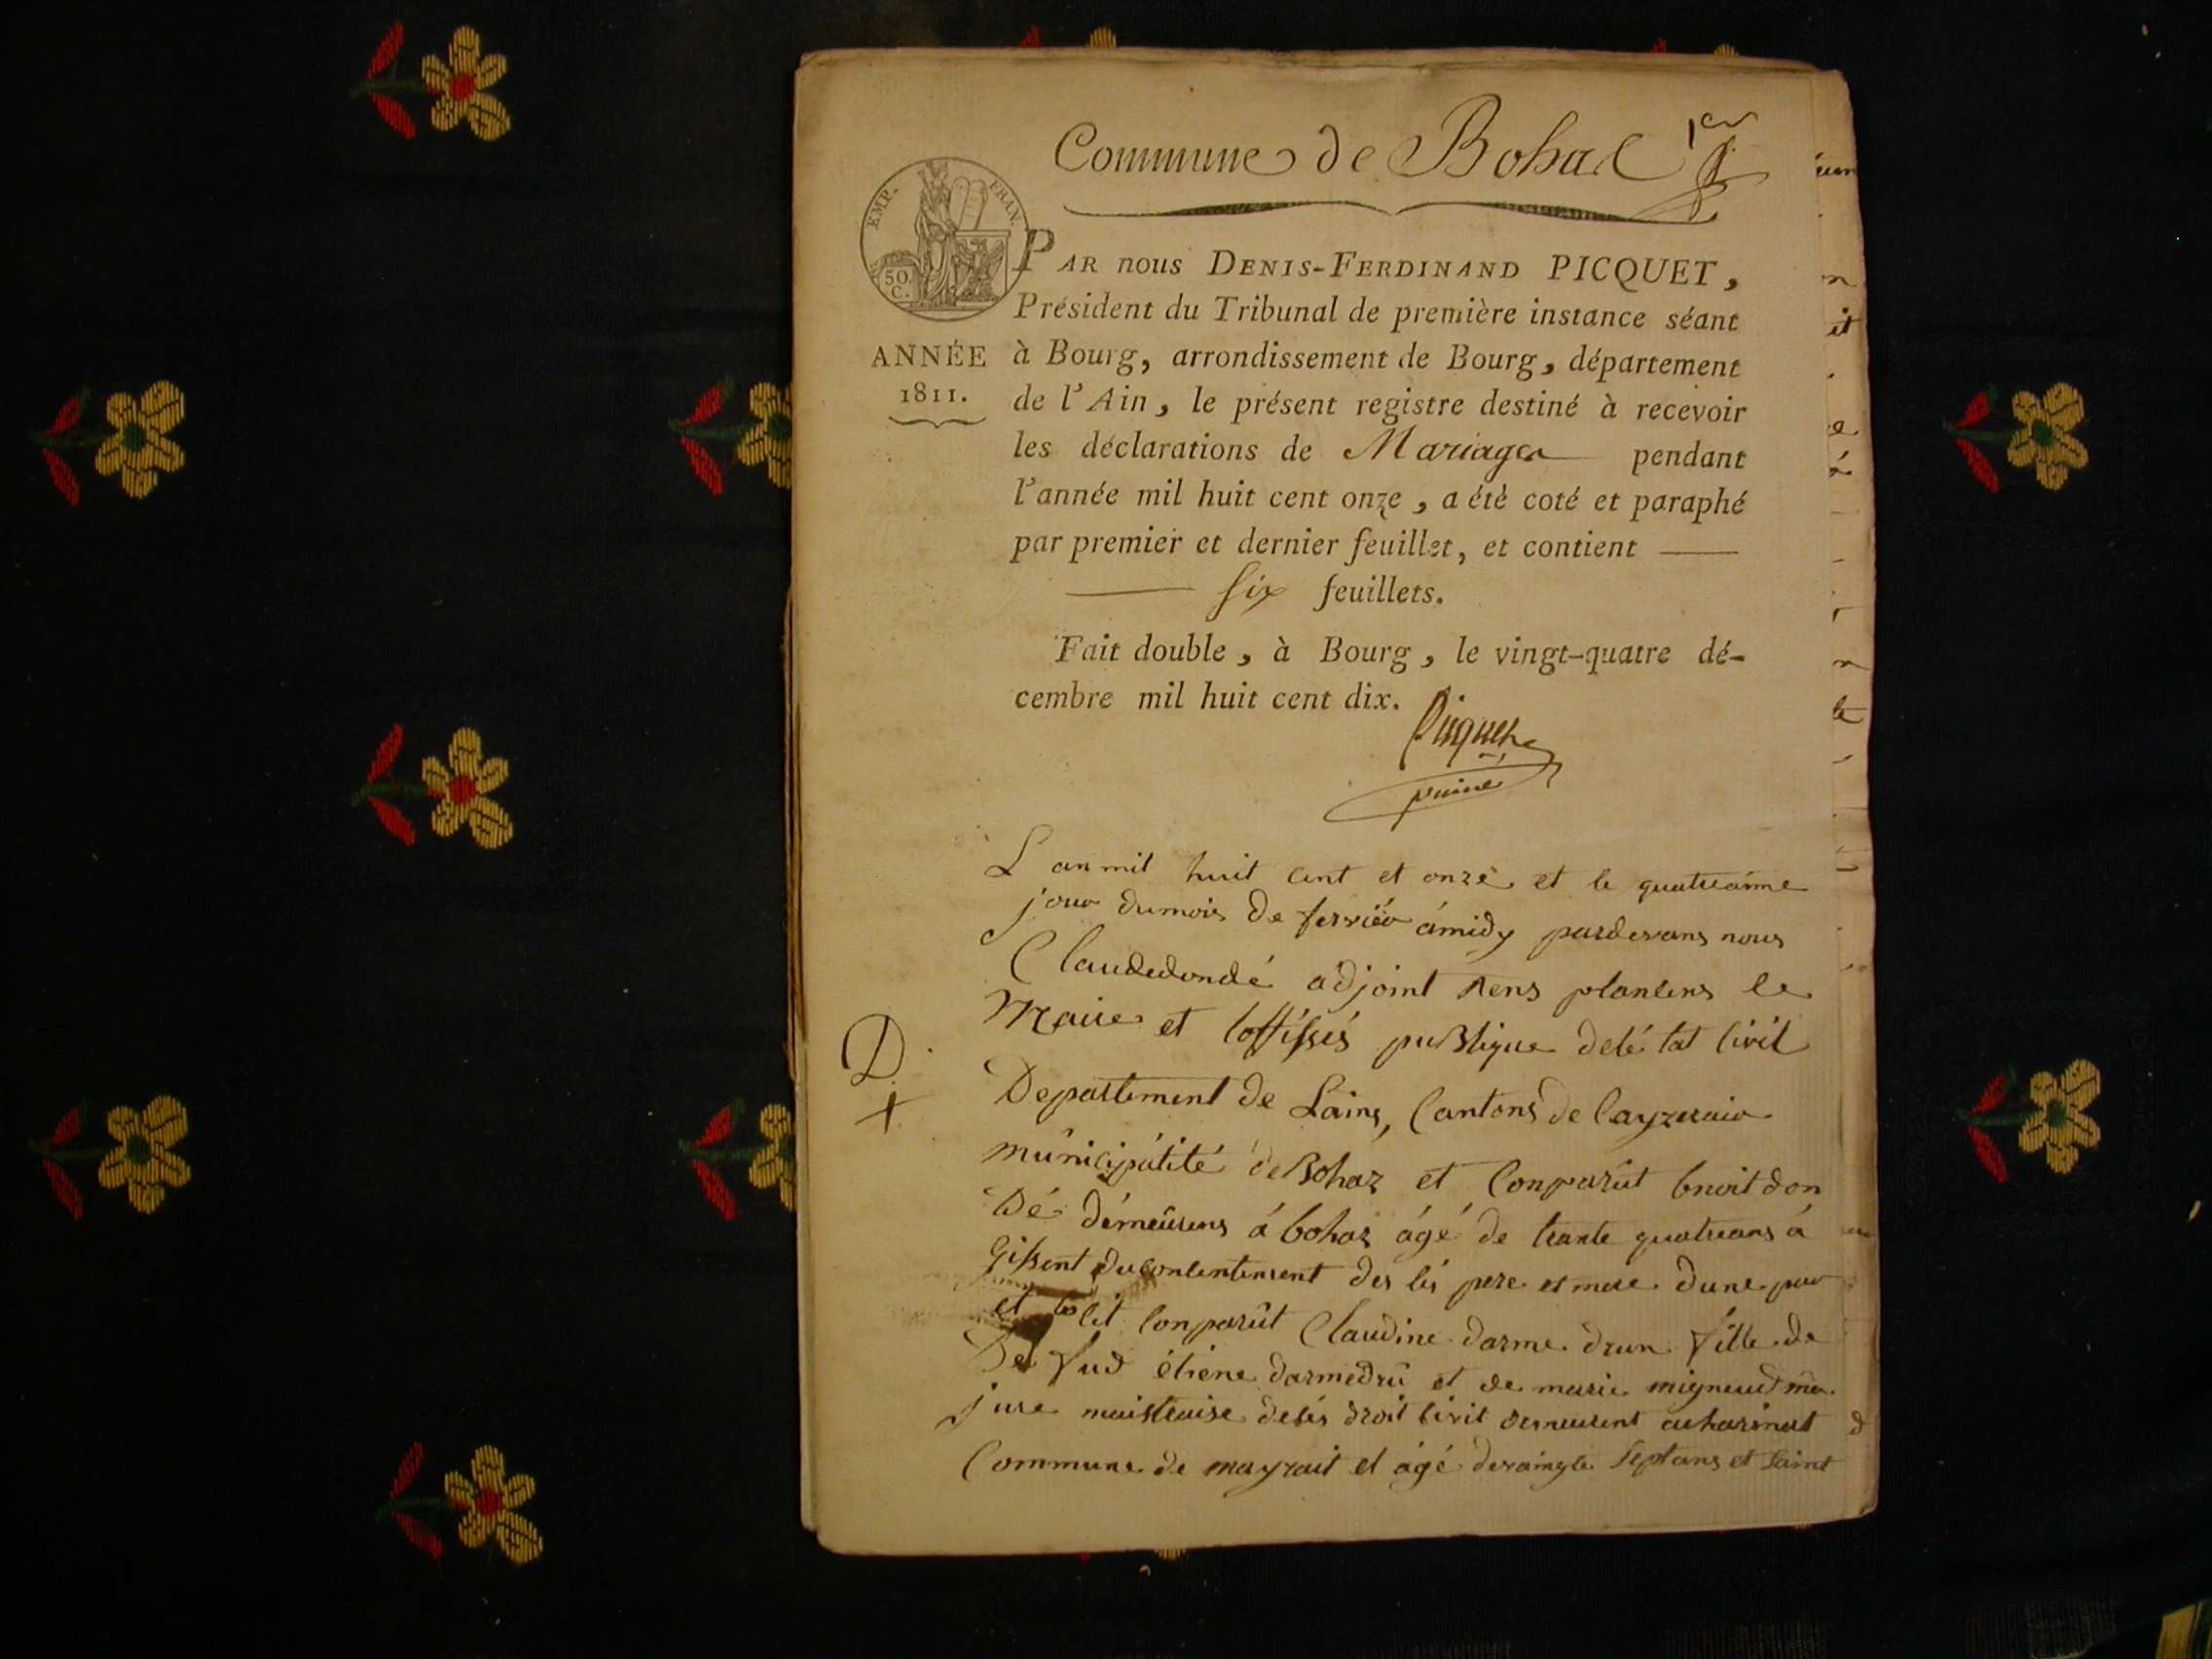 Commune de Bohas 1er
EMP. FRAN.
50 C.
PAR nous DENIS-FERDINAND PICQUET,
Président du Tribunal de première instance séant
ANNÉE
1811.
à Bourg, arrondissement de Bourg, département
de l'Ain, le présent registre destiné à recevoir
les déclarations de Mariages pendant
l'année mil huit cent onze, a été coté et paraphé
par premier et dernier feuillet, et contient
six feuillets.
Fait double, à Bourg, le vingt-quatre dé-
cembre mil huit cent dix.
Picquet
L an mil huit cent et onze et le quatreaime
jour dumois de ferviér ámidy pardevans nous
Claudedondé adjoint rens planlens le
Maire et loffissés publique delé tat Civil
D
Departement de Lains, Cantons de Cayzerair
municipálité de Bohaz et Conparût bnoit don
Dé démeûrens á bohas ágé de trante quatreans á
Gissent du Contentement des lés pere et mere dune par
et lit Conparût Claudine darme drun fille de
De fud étiene darmedrû et de marie migneud ma
jure maistraise delés droit Civil demeurent au
Commune de mayrait et ágé devaingte Septans et Saint